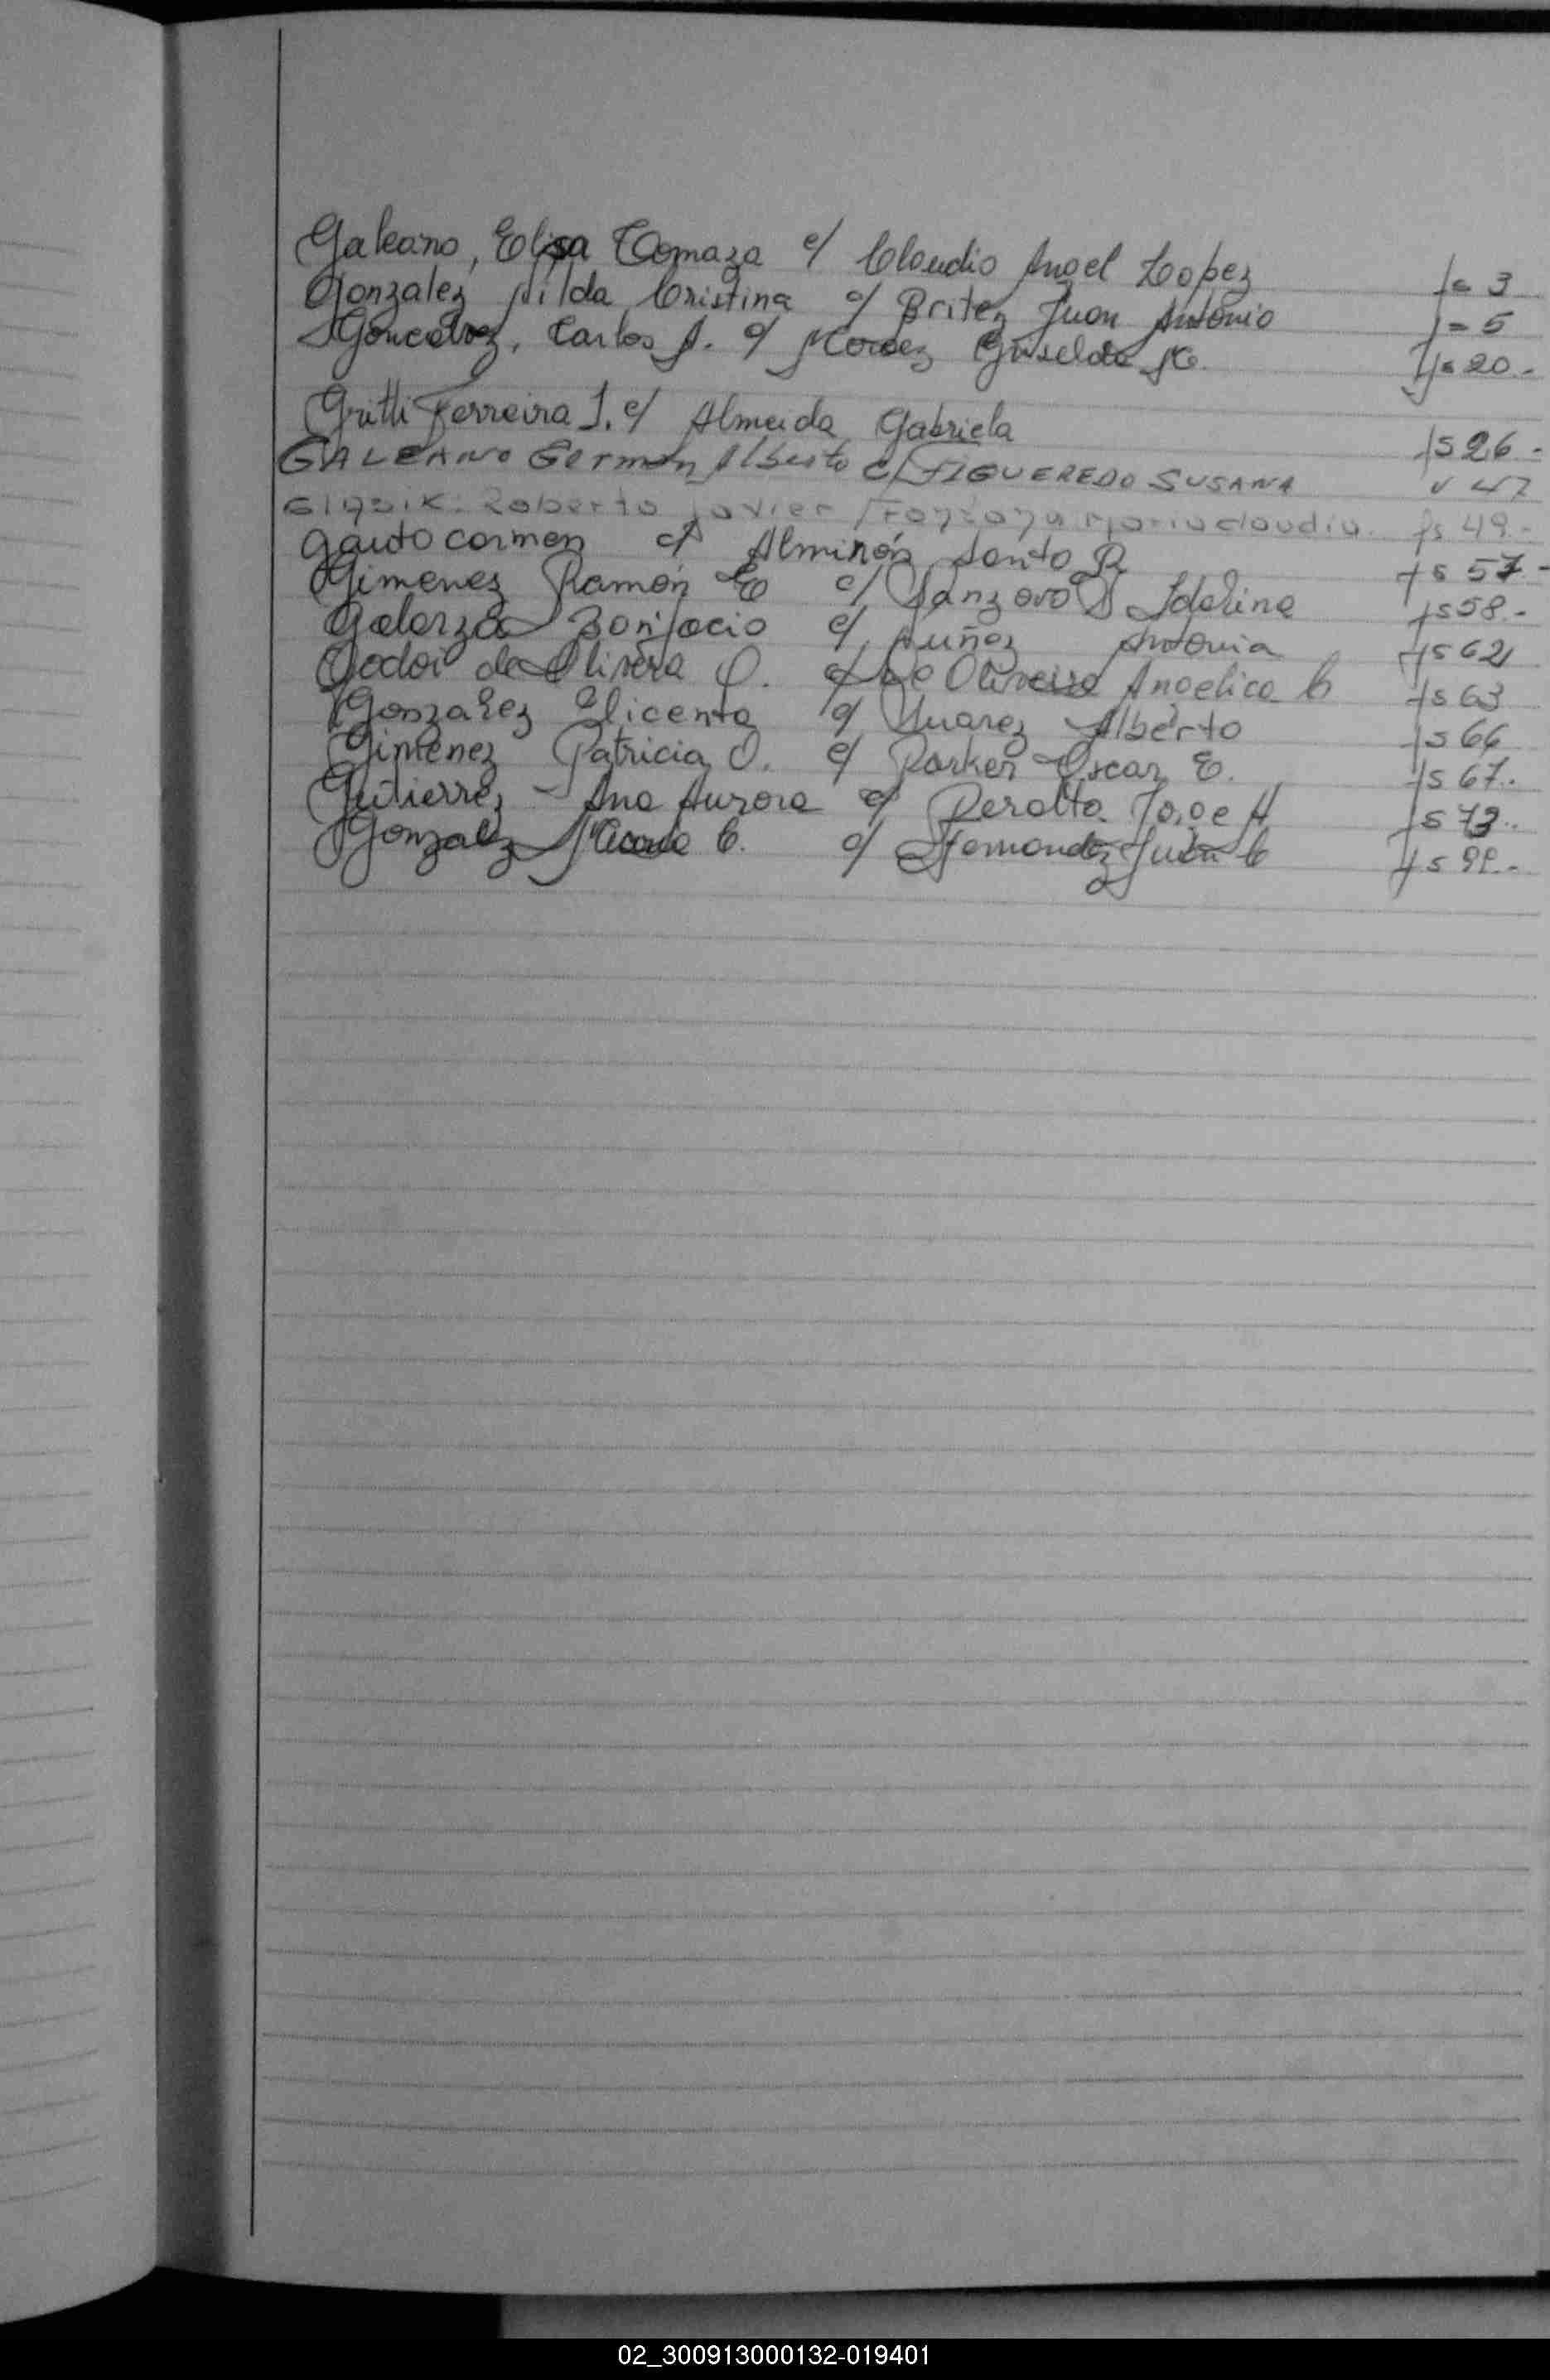 Galeano, Elisa Tomaza c/ Claudio Angel Lopez fs 3
Gonzalez Nilda Cristina c/ Britez Juan Antonio fs 5
Goncalvez, Carlos A. c/ Griselda fs 20.-
Gritti Ferreira J. c/ Almeida Gabriela fs 26.-
GALEANO German Alberto c/ FIGUEREDO SUSANA 47
Roberto Javier / Fontana Maria claudia. fs 49.-
Gauto carmen c/ Almirón Santo R fs 57.-
Gimenez Ramón E c/ Idelina fs 58.-
Galarza Bonifacio c/ Nuñez Antonia fs 62
Godoi de Olivera O. c/ De Oliveira Angelica C fs 63
Gonzalez Elicenta c/ Suarez Alberto fs 66
Gimenez Patricia O. c/ Parker Oscar E. fs 67..
Gutierrez Ana Aurora c/ Peralta Jorge H fs 73..
Gonzalez C. c/ Fernandez Juan C fs 99.-
02_300913000132-019401